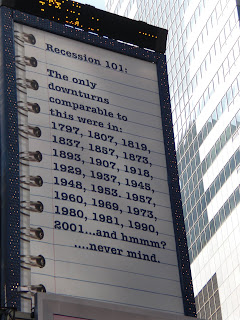 Recession 101:
The only
downturns
comparable to
this were in:
1797, 1807, 1819,
1837, 1857, 1873,
1893, 1907, 1918,
1929, 1937, 1945,
1948, 1953, 1957,
1960, 1969, 1973,
1980, 1981, 1990,
2001...and hmmm?
....never mind.